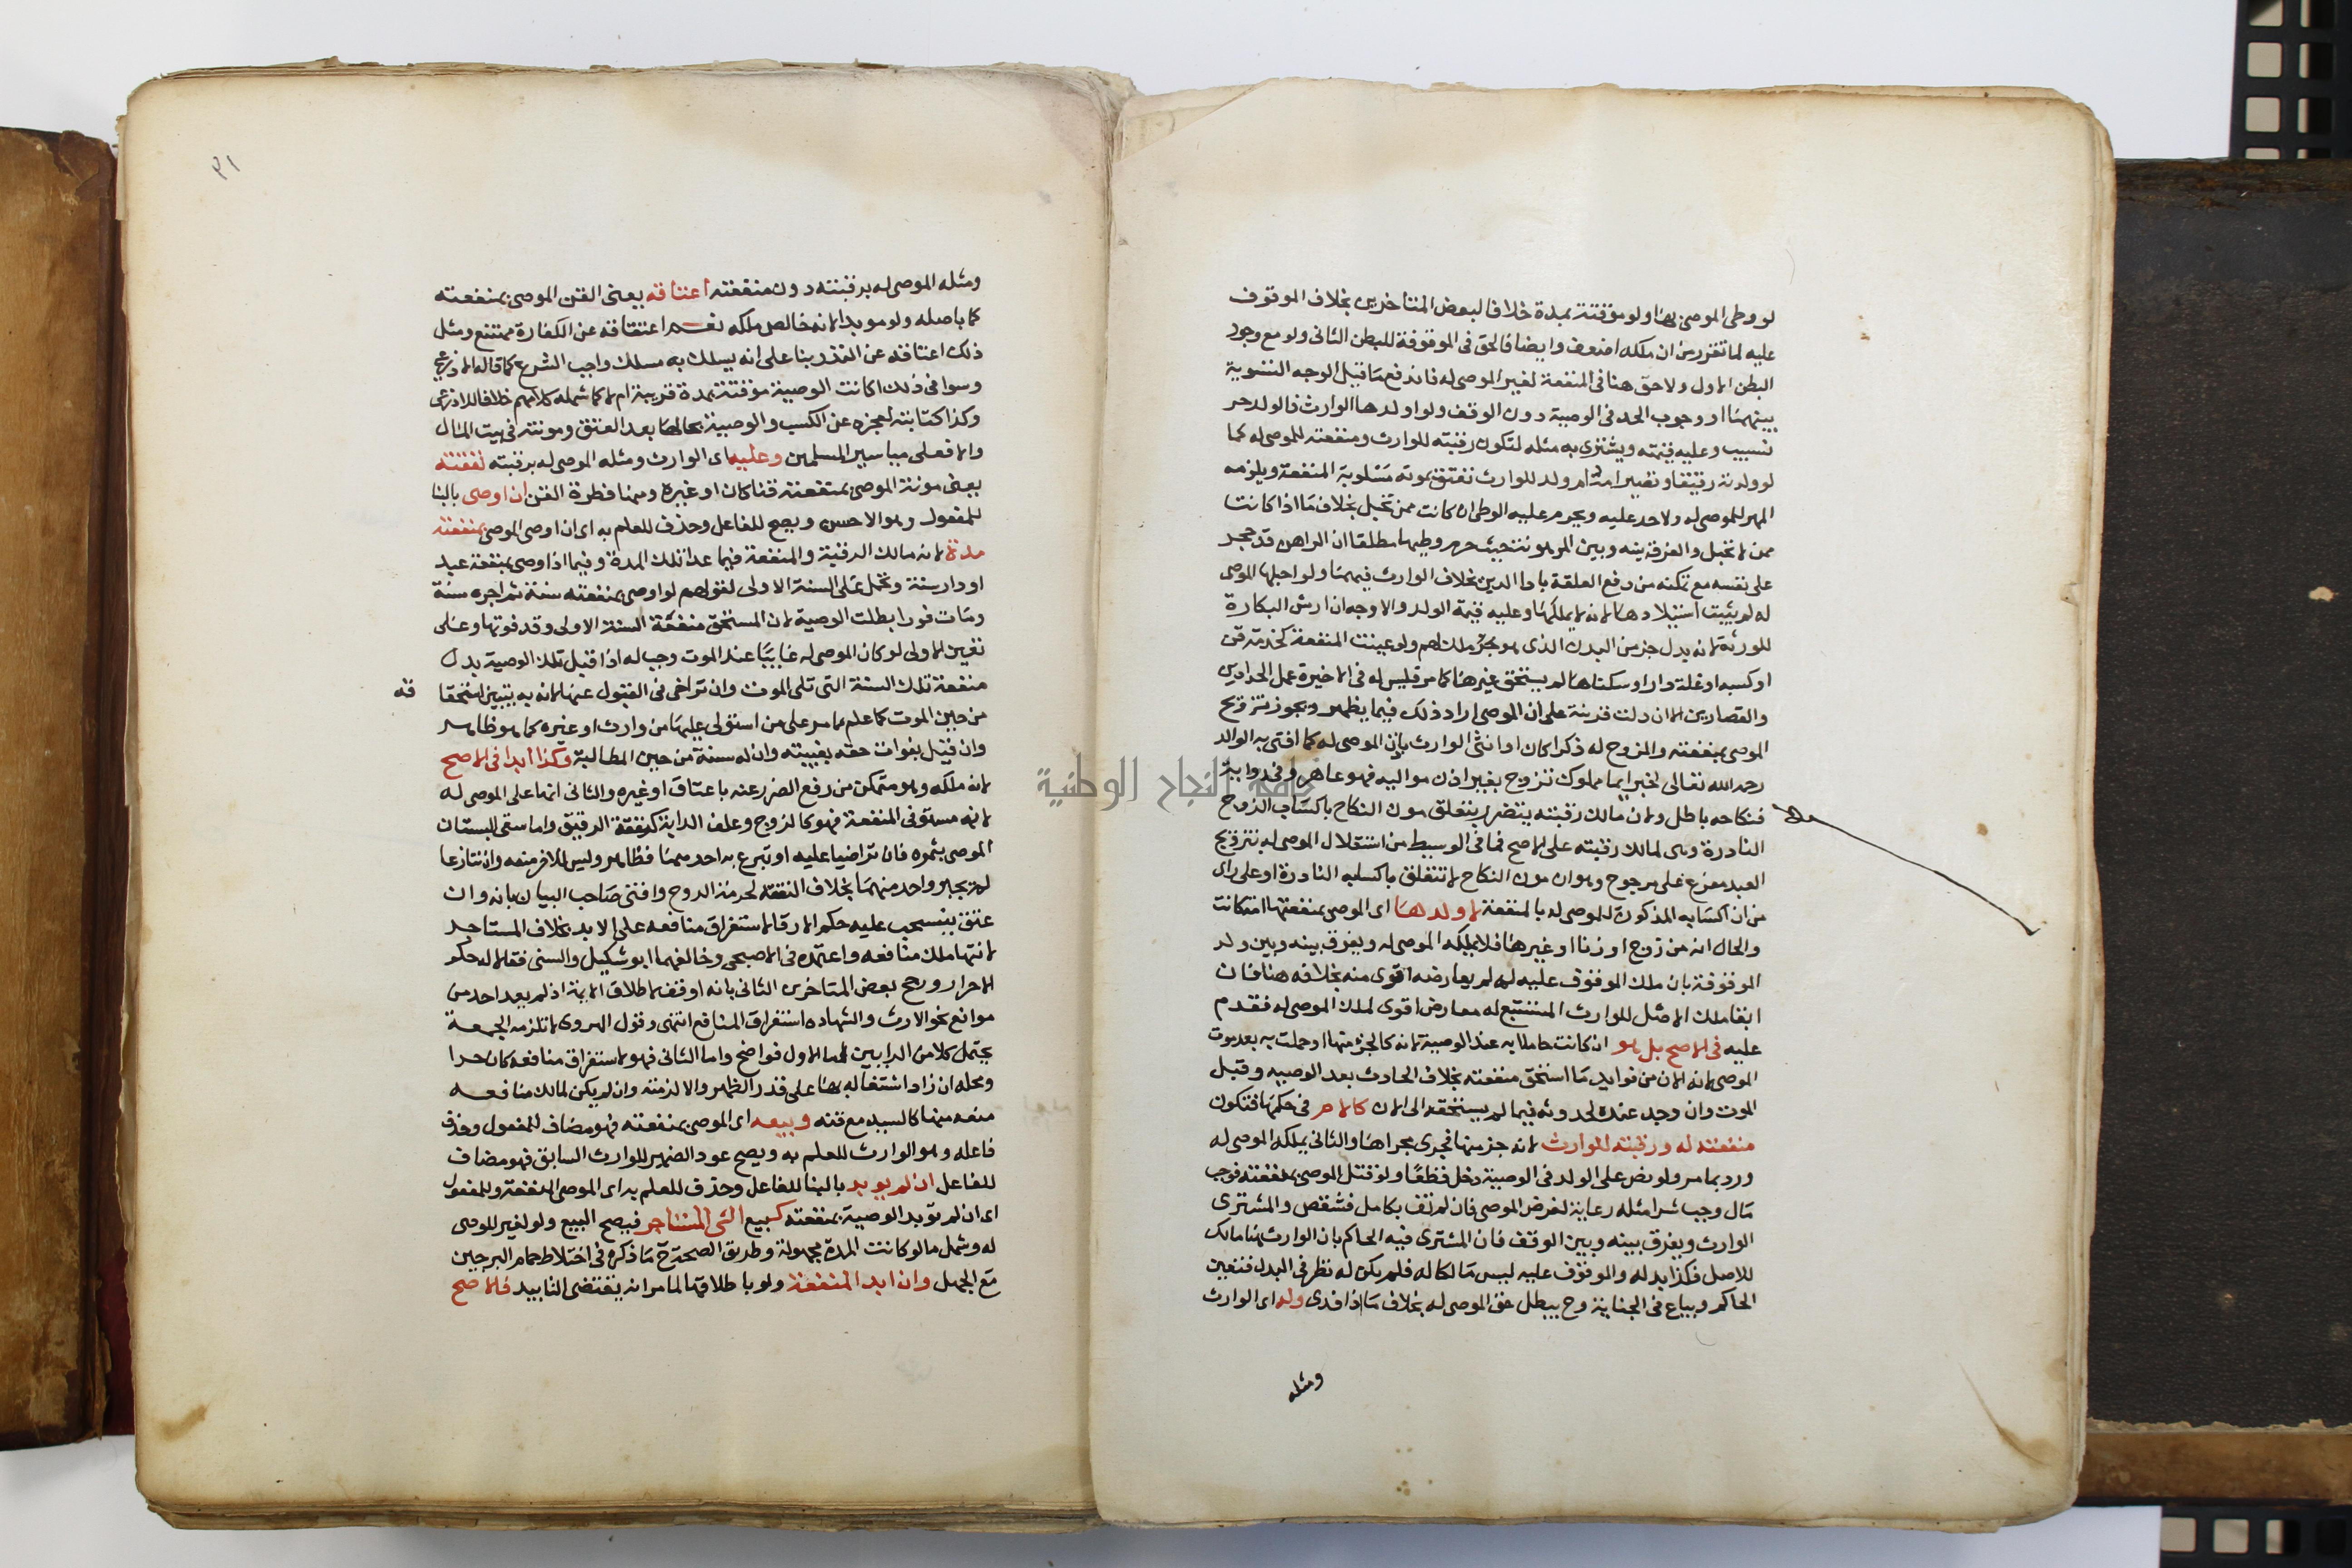 لو وطى الموصى بها ولو موقتة بمدة خلافا لبعض المتاخرين بخلاف الموقوف
عليه لما تقرر من ان ملكه اضعف وايضا فالحق فى الموقوفة للبطن الثانى ولو مع وجود
البطن الاول ولا حق هنا فى المنفعة لغير الموصى له فاندفع ما قيل الوجه التسوية
بينهما او وجوب الحد فى الوصية دون الوقف ولو اولدها الوارث فالولد حر
نسيب وعليه قيمته ويشترى به مثله لتكون رقبته للوارث ومنفعته للموصى له كما
لو ولدته رقيقا وتصير امه ام ولد للوارث تعتق بموته مسلوبة المنفعة ويلزمه
المهر للموصى له ولا حد عليه ويحرم عليه الوطى ان كانت ممن تحبل بخلاف ما اذا كانت
ممن لا تحبل والفرق بينه وبين المرهونة حيث حرم وطيها مطلقا ان الراهن قد حجر
على نفسه مع تمكنه من رفع العلقة بادا الدين بخلاف الوارث فيهما ولو احبلها الموصى
له لم يثبت استيلادها لانه لا يملكها وعليه قيمة الولد والاوجه ان ارش البكارة
للورثة لانه بدل جز من البدن الذى هو ملك لهم ولو عينت المنفعة كخدمة قن
او كسبه او غلة دار او سكناها لم يستحق غيرها كما مر فليس له فى الاخيرة عمل الحدادين
والقصارين الا ان دلت قرينة على ان الموصى اراد ذلك فيما يظهر ويجوز تزويج
الموصى بمنفعته والمزوج له ذكرا كان او انثى الوارث باذن الموصى له كما افتى به الوالد
رحمه الله تعالى لخبر ايما مملوك تزوج بغير اذن مواليه فهو عاهر وفى رواية
فنكاحه باطل ولان مالك رقبته يتضرر بتعلق مون النكاح باكساب الزوج
النادرة وهى لمالك رقبته على الاصح فما فى الوسيط من استقلال الموصى له بتزويج
العبد مفرع على مرجوح وهو ان مون النكاح لا تتعلق باكسابه النادرة او على راى
من ان اكسابه المذكورة للموصى له بالمنفعة لا ولدها اى الموصى بمنفعتها امة كانت
والحال انه من زوج او زنا او غيرها فلا يملكه الموصى له ويفرق بينه وبين ولد
الموقوفة بان ملك الموقوف عليه له لم يعارضه اقوى منه بخلافه هنا فان
ابقا ملك الاصل للوارث المستتبع له معارض اقوى لملك الموصى له فقدم
عليه فى الاصح بل هو ان كانت حاملا به عند الوصية لانه كالجز منها او حملت به بعد موت
الموصى لانه الان من فوايد ما استحق منفعته بخلاف الحادث بعد الوصية وقبل
الموت وان وجد عنده لحدوثه فيما لم يستحقه الى الان كالام فى حكمها فتكون
منفعته له ورقبته للوارث لانه جز منها فجرى مجراها والثانى يملكه الموصى له
ورد بما مر ولو نص على الولد فى الوصية دخل قطعا ولو قتل الموصى بمنفعته فوجب
مال وجب شرا مثله رعاية لغرض الموصى فان لم تف بكامل فشقص والمشترى
الوارث ويفرق بينه وبين الوقف فان المشترى فيه الحاكم بان الوارث هنا مالك
للاصل فكذا بدله والموقوف عليه ليس مالكا له فلم يكن له نظر فى البدل فتعين
الحاكم ويباع فى الجناية وح يبطل حق الموصى له بخلاف ما اذا فدى وله اى الوارث
ومثله
٣١
ومثله الموصى له برقبته دون منفعته اعتاقه يعنى القن الموصى بمنفعته
كما باصله ولو موبدا لانه خالص ملكه نعم اعتاقه عن الكفارة ممتنع ومثل
ذلك اعتاقه عن النذر بنا على انه يسلك به مسلك واجب الشرع كما قاله الاذرعى
وسوا فى ذلك اكانت الوصية موقتة بمدة قريبة ام لا كما شمله كلامهم خلافا للاذرعى
وكذا كتابته لعجزه عن الكسب والوصية بحالها بعد العتق ومونته فى بيت المال
والا فعلى مياسير المسلمين وعليه اى الوارث ومثله الموصى له برقبته نفقته
يعنى مونة الموصى بمنفعته قنا كان او غيره ومنها فطرة القن ان اوصى بالبنا
للمفعول وهو الاحسن ويصح للفاعل وحذف للعلم به اى ان اوصى الموصى بمنفعته
مدة لانه مالك الرقبة والمنفعة فيما عدا تلك المدة وفيما اذا اوصى بمنفعة عبد
او دار سنة وتحمل على السنة الاولى لقولهم لو اوصى بمنفعته سنة ثم اجره سنة
ومات فورا بطلت الوصية لان المستحق منفعة السنة الاولى وقد فوتها وعلى
تعين الاولى لو كان الموصى له غايبا عند الموت وجب له اذا قبل تلك الوصية بدل
منفعة تلك السنة التى تلى الموت وان تراخى فى القبول عنها لانه به يتبين استحقا
قه
من حين الموت كما علم مما مر على من استولى عليها من وارث او غيره كما هو ظاهر
وان قيل بفوات حقه بغيبته وان له سنة من حين المطالبة وكذا ابدا فى الاصح
لانه ملكه وهو متمكن من رفع الضرر عنه باعتاق او غيره والثانى انها على الموصى له
لانه مستوفى المنفعة فهو كالزوج وعلف الدابة كنفقة الرقيق واما سقى البستان
الموصى بثمره فان تراضيا عليه او تبرع به احدهما فظاهر وليس للاخر منعه وان تنازعا
لم يجبر واحد منهما بخلاف النفقة لحرمة الروح وافتى صاحب البيان بانه وان
عتق ينسحب عليه حكم الارقا لاستغراق منافعه على الابد بخلاف المستاجر
لانتها ملك منافعه واعتمده فى الاصبحى وخالفهما ابو شكيل والسنى فقالا له حكم
الاحرار ورجح بعض المتاخرين الثانى بانه اوفق لاطلاق الايمة اذ لم يعد احد من
موانع نحو الارث والشهاده استغراق المنافع انتهى وقول الهروى لا تلزمه الجمعة
يحتمل كلا من الرايين اما الاول فواضح واما الثانى فهو لاستغراق منافعه كان حرا
ومحله ان زاد اشتغاله بها على قدر الظهر والا لزمته وان لم يكن لمالك منافعه
منعه منها كالسيد مع قنه وبيعه اى الموصى بمنفعته فهو مضاف للمفعول وحذف
فاعله وهو الوارث للعلم به ويصح عود الضمير للوارث السابق فهو مضاف
للفاعل ان لم يوبد بالبنا للفاعل وحذف للعلم به اى الموصى المنفعة وللمفعول
اى ان لم توبد الوصية بمنفعته كبيع الشى المستاجر فيصح البيع ولو لغير الموصى
له وشمل ما لو كانت المدة مجهولة وطريق الصحة ح ما ذكره فى اختلاط حمام البرجين
مع الجهل وان ابد المنفعة ولو باطلاقها لما مر انه يقتضى التابيد فالاصح
جامعة النجاح الوطنية